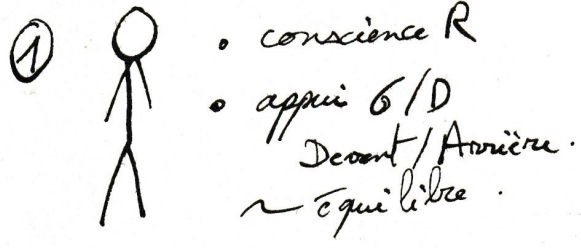 ① • conscience R
• appui G/D
Devant/Arrière.
~ équilibre.